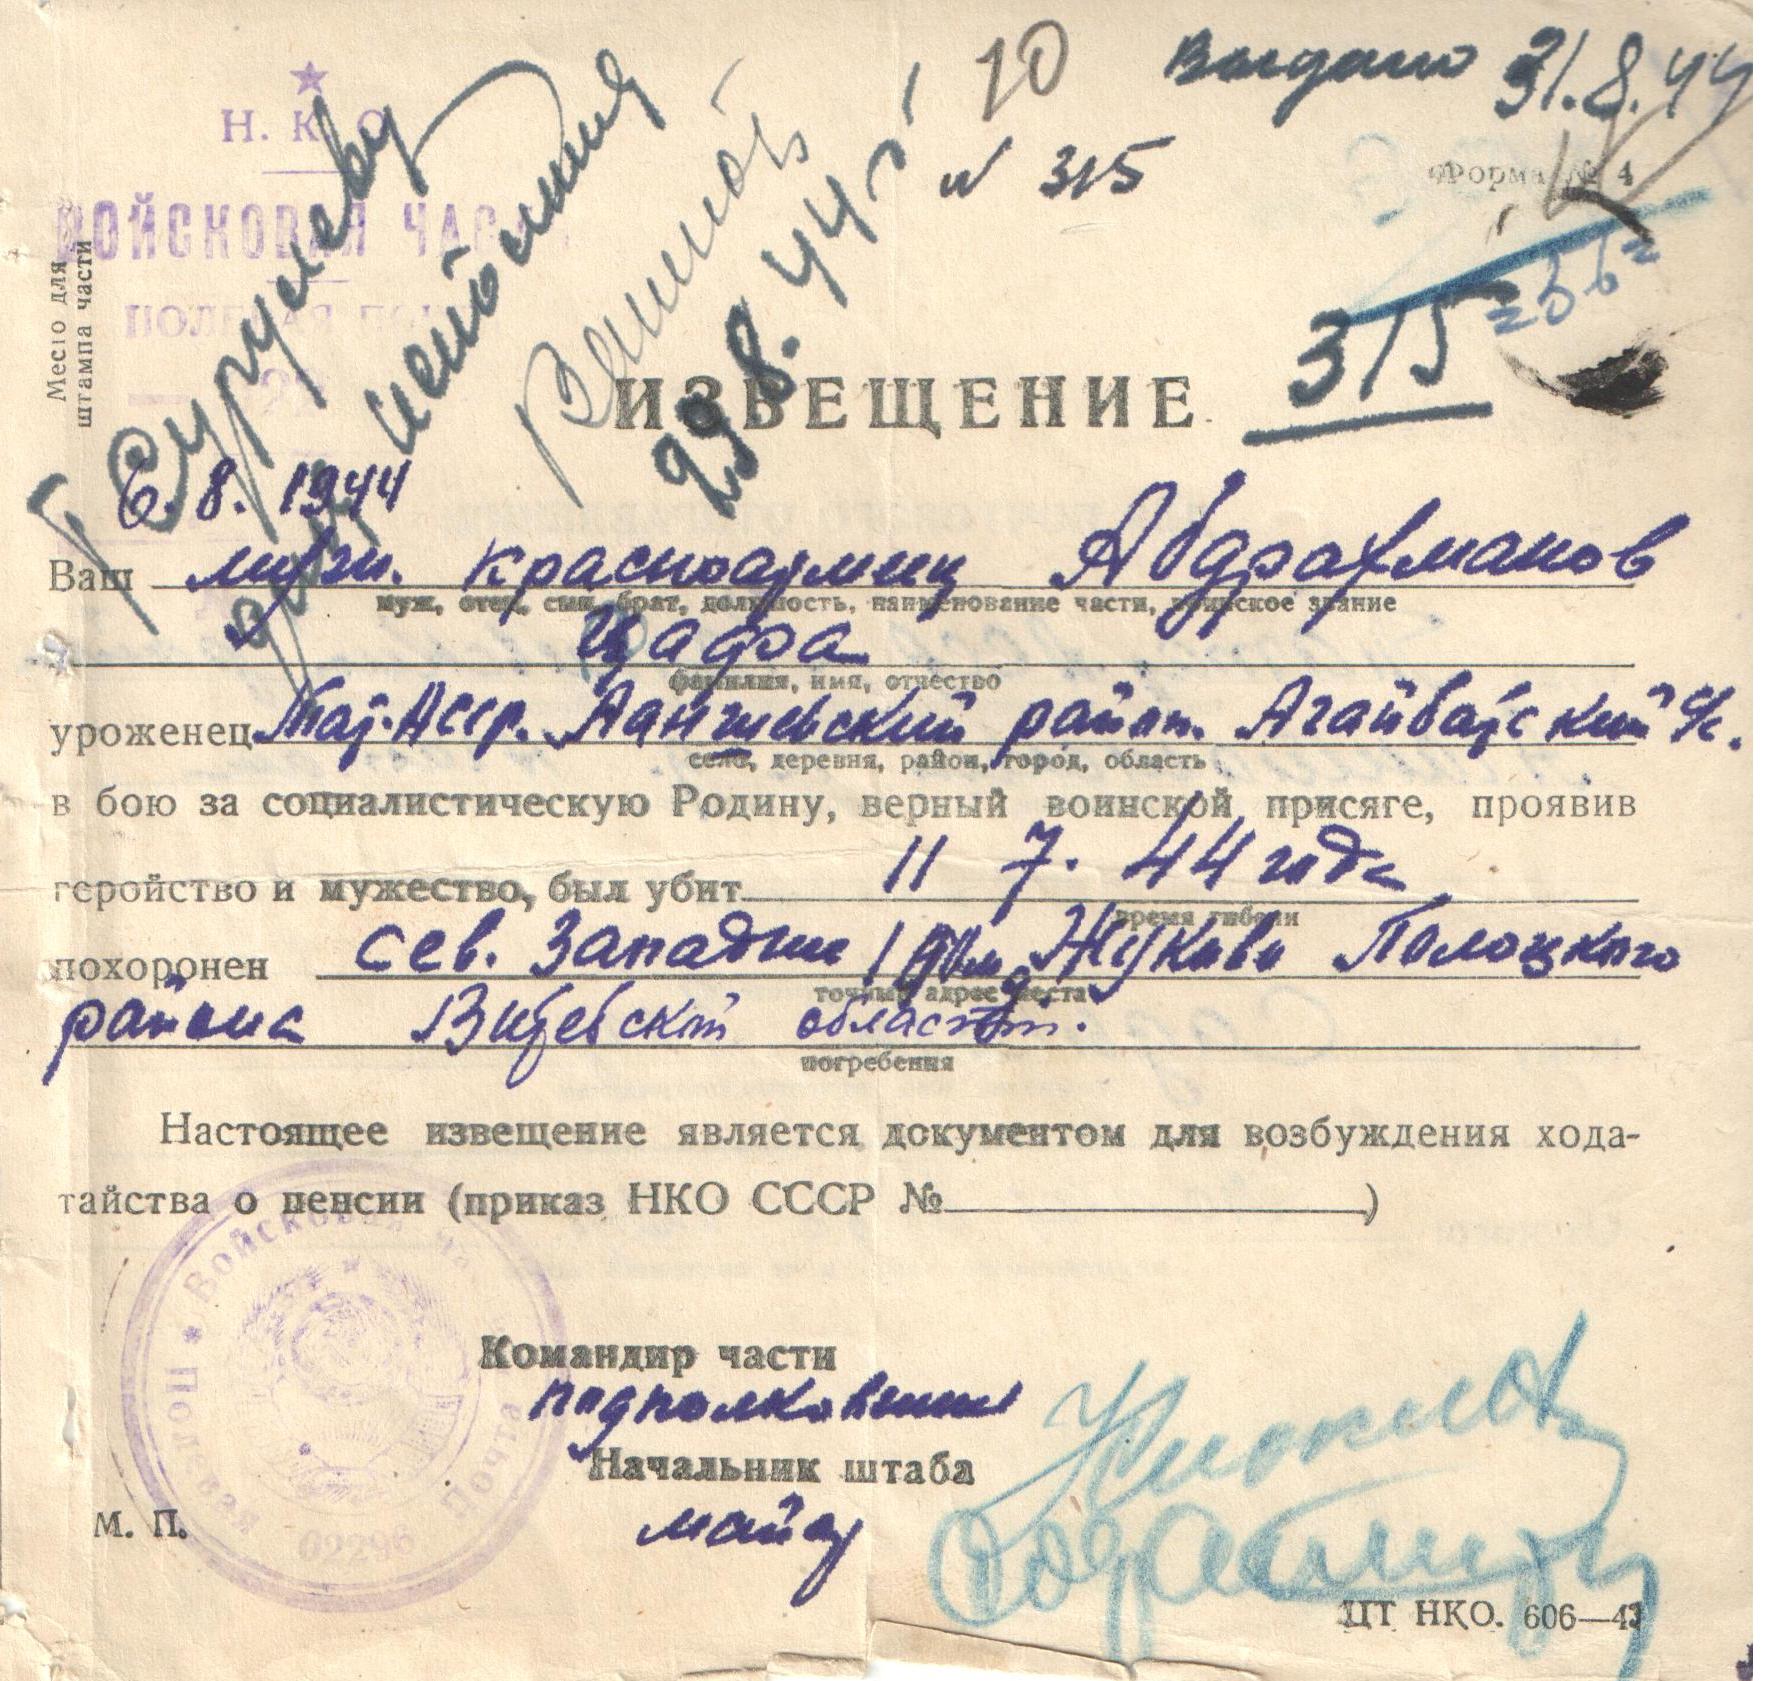 10
Выдано 31.8.44
№ 315
Форма № 4
Н. К. О.
ВОЙСКОВАЯ ЧАСТЬ
ПОЛЕВАЯ
Место для
штампа части
29.8.44
315
ИЗВЕЩЕНИЕ
6.8.1944
Ваш красноармеец Абдрахманов
муж, отец, сын, брат, должность, наименование части, воинское звание
фамилия, имя, отчество
уроженец Тат. АССР. район
село, деревня, район, город, область
в бою за социалистическую Родину, верный воинской присяге, проявив
геройство и мужество, был убит 11 7. 44 года
время гибели
похоронен сев. Западнее Жуково Полоцкого
точный адрес места
района Витебской области.
погребения
Настоящее извещение является документом для возбуждения хода-
тайства о пенсии (приказ НКО СССР № )
Войсковая часть * Полевая почта
02296
Командир части
подполковник
Начальник штаба
майор
М. П.
ЦТ НКО. 606—43